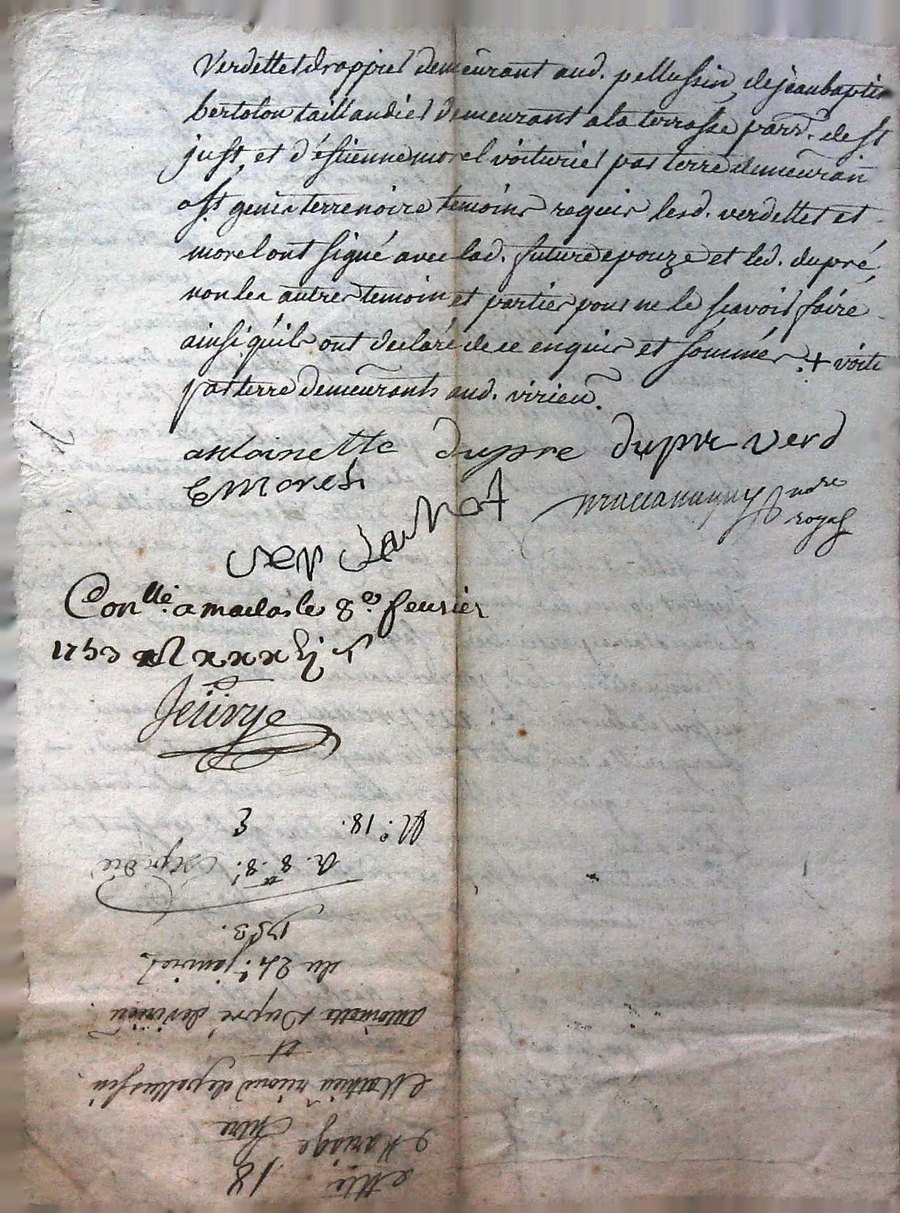 Verdettet drappier demeurant aud. pellussin, de jean baptis
bertolon taillandier demeurant a la terrasse parr. de st
just, et d'éstienne morel voiturier par terre demeuran
a st genis terrenoire temoins requis lesd. verdettet et
morel ont signé avec lad. future epouze et led. dupré
non les autres temoin et parties pour ne le scavoir faire
ainsi qu'ils ont declaré de ce enquis et sommés + voitu
par terre demeurants aud. virieu
antoinette dupre dupre verd
E Morel
nore
royal
Conllé a maclas le 8e fevrier
1753
Jeurye
N.° 18.
R. 8 8. Expedié
1753.
du 24e janvier
antoinette Dupré de virieu
et
Mathieu rioud de pellussin
Mariage Entre
18